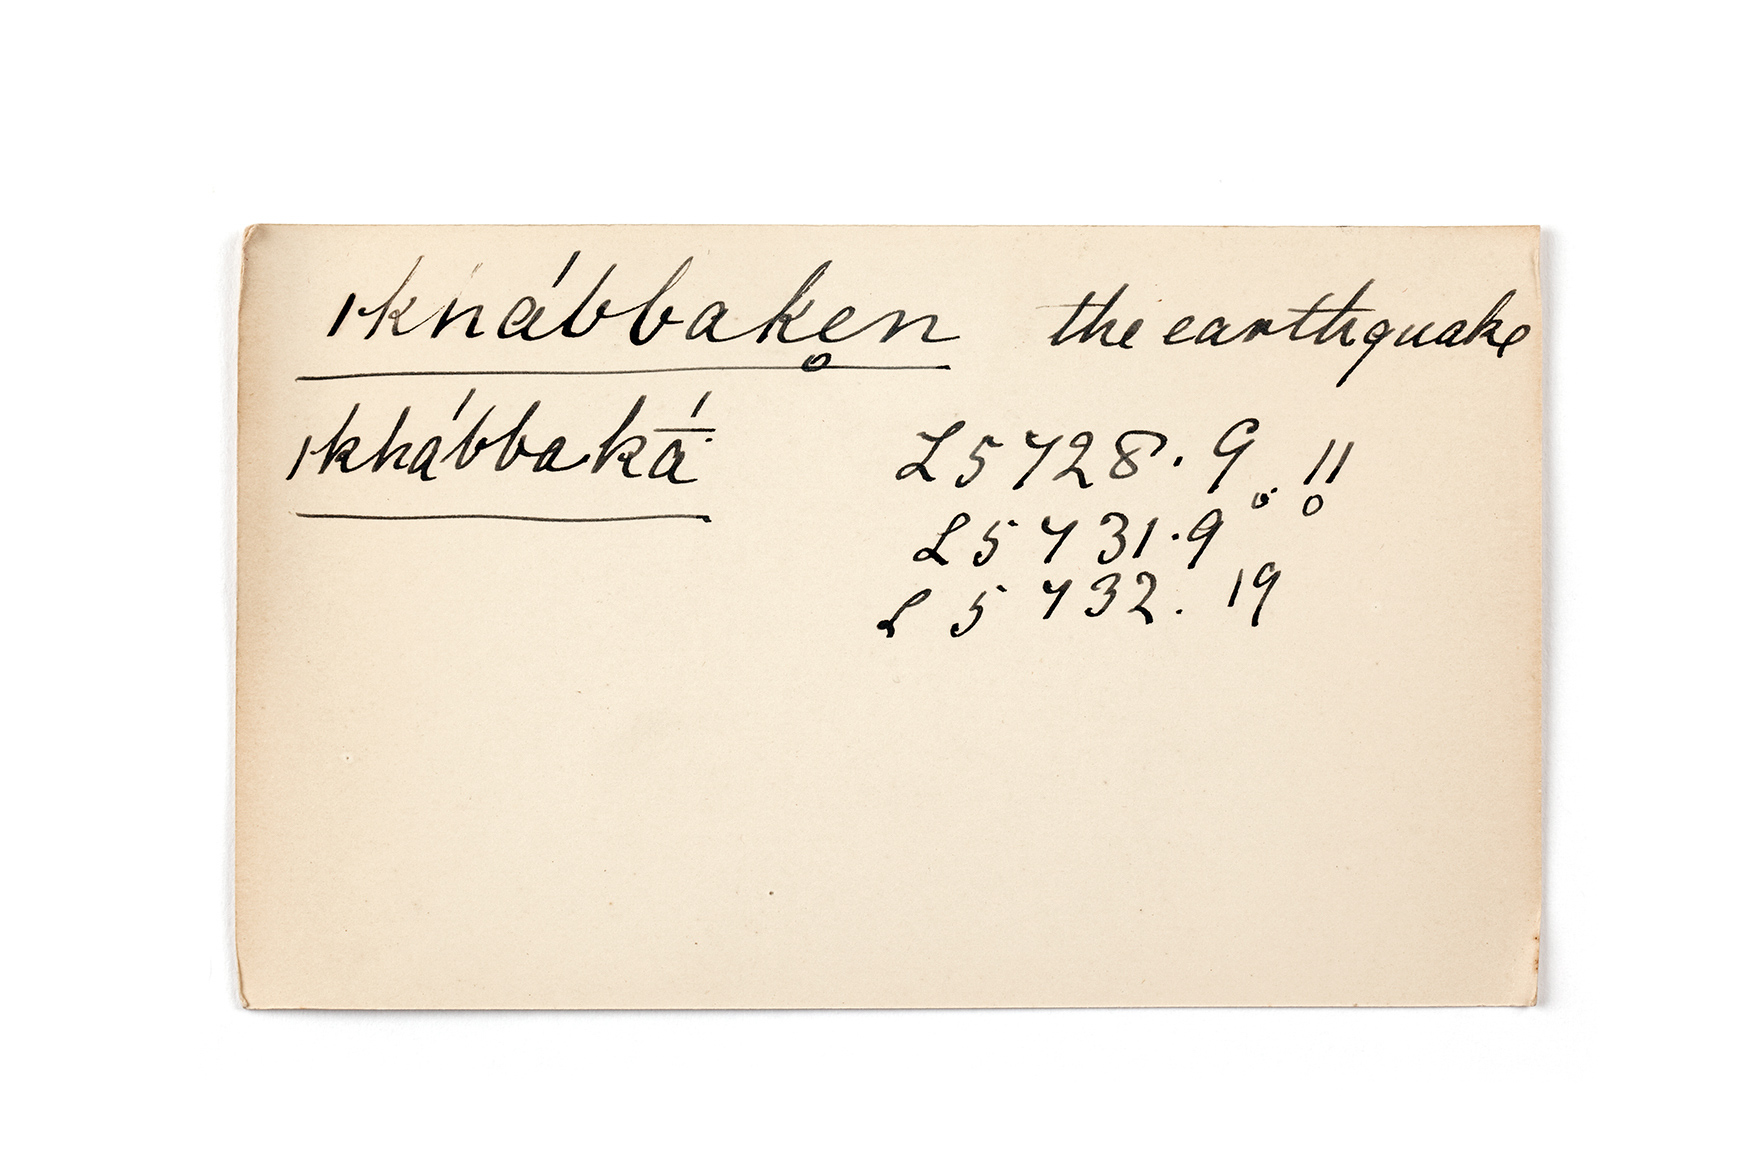 ıknábbaken̥ the earthquake
ıknábbaká̄
L5728.9. 11
L5731.9
L5732.19